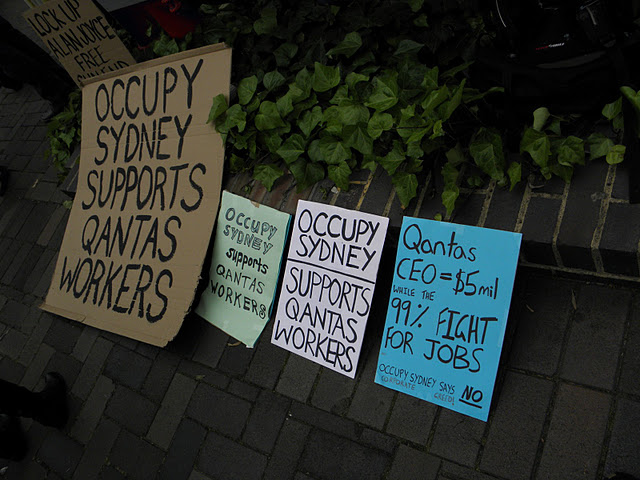 LOCK UP
ALAN JOYCE
FREE
OCCUPY
SYDNEY
SUPPORTS
QANTAS
WORKERS
OCCUPY
SYDNEY
supports
QANTAS
WORKERS
OCCUPY
SYDNEY
SUPPORTS
QANTAS
WORKERS
Qantas
CEO = $5mil
WHILE THE
99% FIGHT
FOR JOBS
OCCUPY SYDNEY SAYS NO
CORPORATE GREED